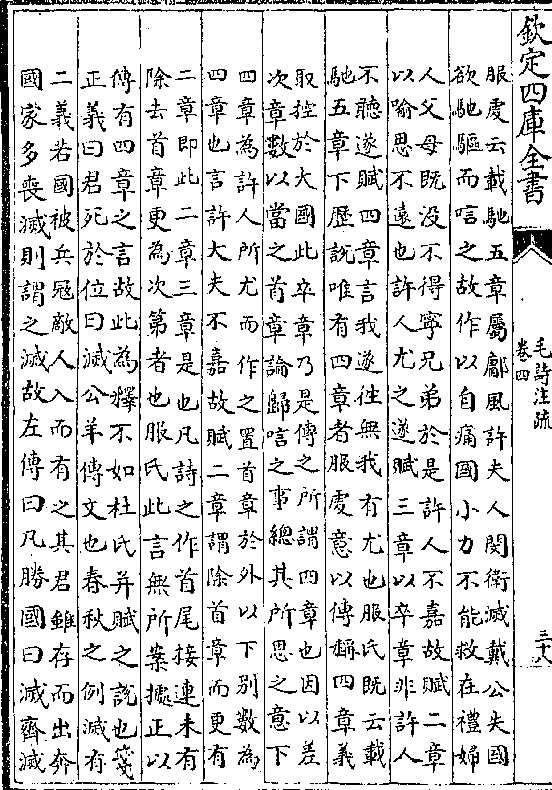 欽定四庫全書
毛詩注疏
卷四
三十八
服虔云載馳五章屬鄘風許夫人閔衛滅戴公失國
欲馳驅而唁之故作以自痛國小力不能救在禮婦
人父母既没不得寧兄弟於是許人不嘉故賦二章
以喻思不遠也許人尤之遂賦三章以卒章非許人
不聽遂賦四章言我遂往無我有尤也服氏既云載
馳五章下歷說唯有四章者服虔意以傳稱四章義
取控於大國此卒章乃是傳之所謂四章也因以差
次章數以當之首章論歸唁之事總其所思之意下
四章為許人所尤而作之置首章於外以下別數為
四章也言許大夫不嘉故賦二章謂除首章而更有
二章即此二章三章是也凡詩之作首尾接連未有
除去首章更為次第者也服氏此言無所案據正以
傳有四章之言故此為釋不如杜氏并賦之說也箋
正義曰君死於位曰滅公羊傳文也春秋之例滅有
二義若國被兵冦敵人入而有之其君雖存而出奔
國家多喪滅則謂之滅故左傳曰凡勝國曰滅齊滅